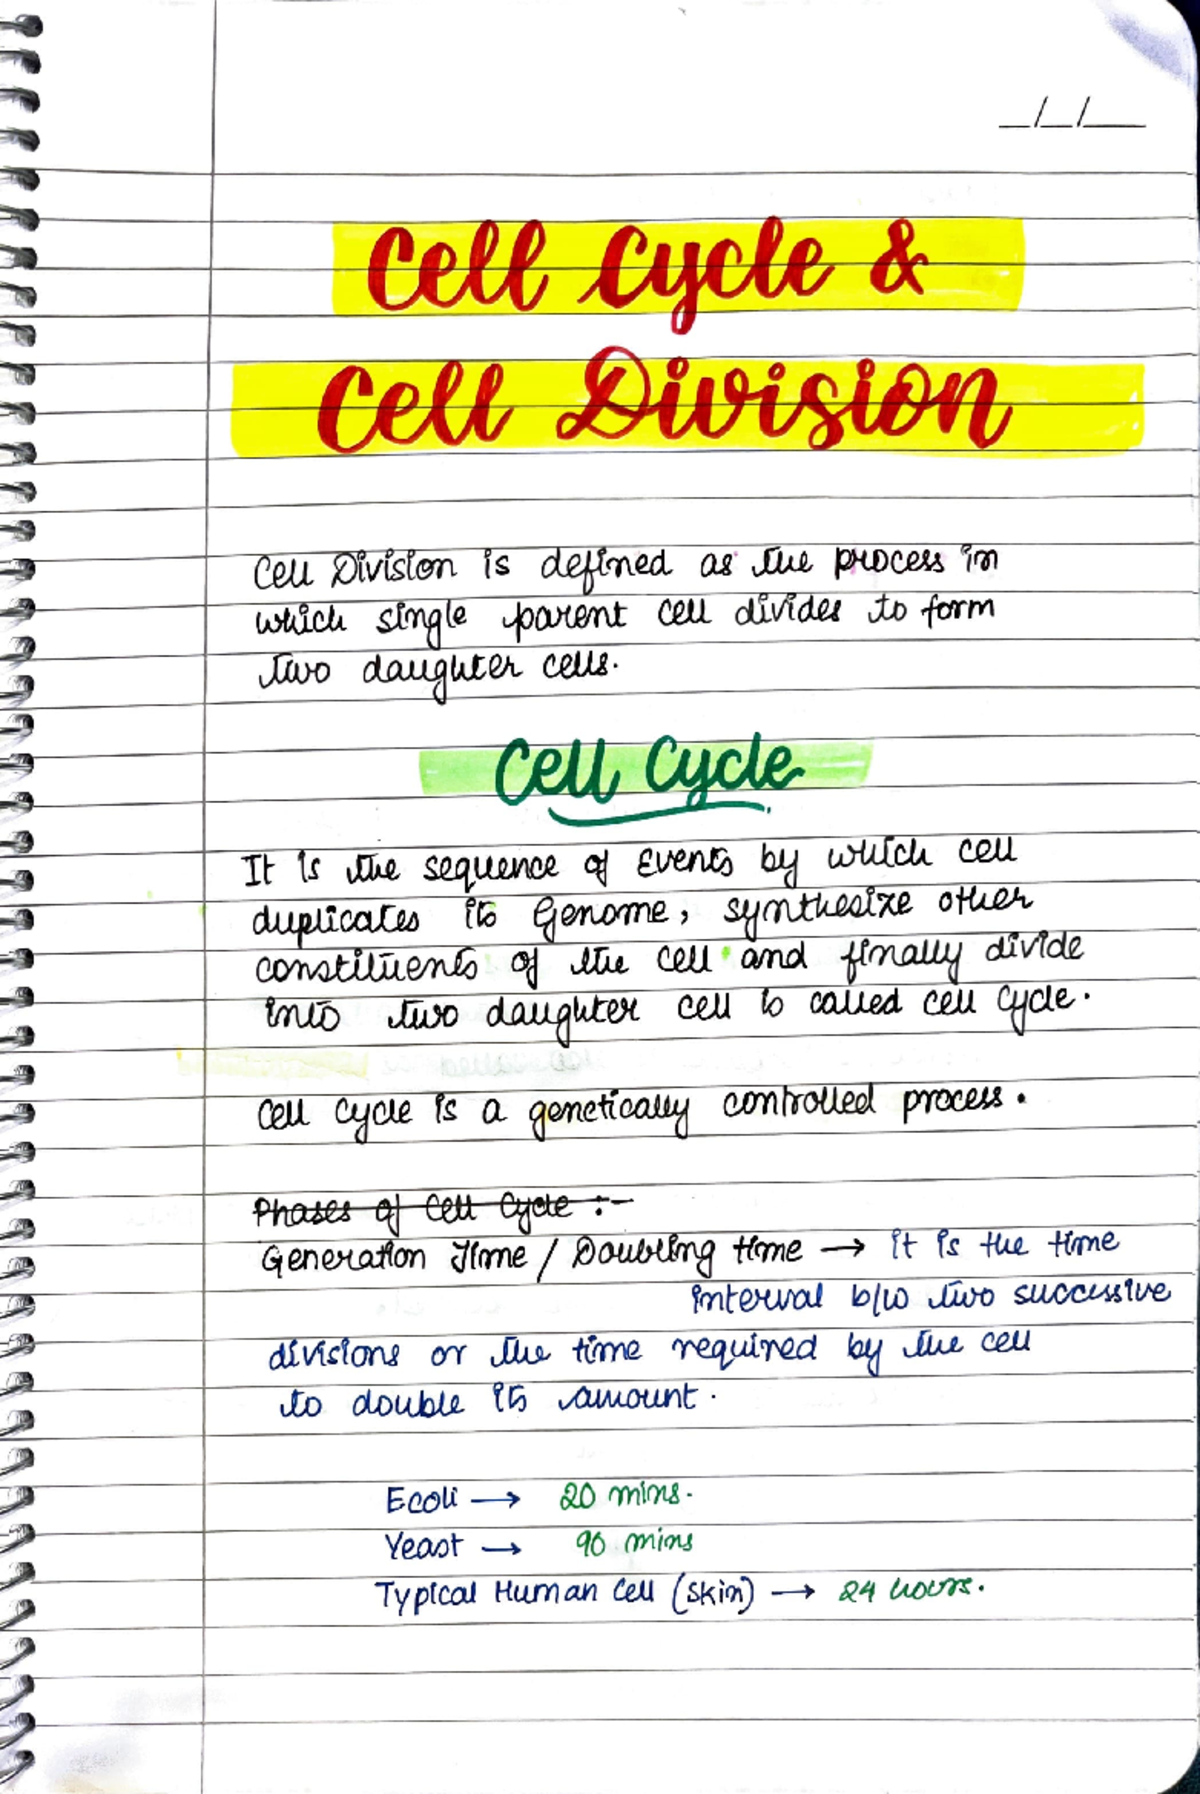 __/__/____
Cell Cycle &
Cell Division
Cell Division is defined as the process in
which single parent cell divides to form
two daughter cells.
Cell Cycle
It is the sequence of Events by which cell
duplicates its Genome, synthesize other
constituents of the cell and finally divide
into two daughter cell is called cell cycle.
Cell cycle is a genetically controlled process.
Phases of Cell Cycle :-
Generation Time / Doubling time → it is the time
interval b/w two successive
divisions or the time required by the cell
to double its amount.
Ecoli → 20 mins.
Yeast → 90 mins
Typical Human Cell (skin) → 24 hours.